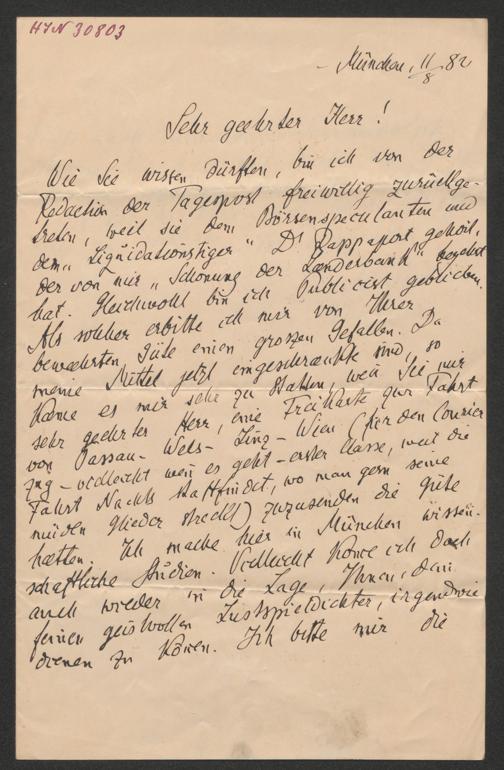 HIN 30803
- München, 11/8 82
Sehr geehrter Herr!
Wie Sie wissen dürften, bin ich von der
Redaction der Tagespost freiwillig zurückge-
treten, weil sie dem Börsenspeculanten und
dem „Liquidationstiger" Dr Rappaport gehört,
der von mir „Schonung der Länderbank" begehrt
hat. Gleichwohl bin ich Publicist geblieben.
Als solcher erbitte ich mir von Ihrer
bewaehrten Güte einen grossen Gefallen. Da
meine Mittel jetzt eingeschraenkte sind, so
käme es mir sehr zu Statten, wen Sie mir
sehr geehrter Herr, eine Freikarte zur Fahrt
von Passau - Wels - Linz - Wien (für den Courier
zug - vielleicht wen es geht - erster Classe, weil die
Fahrt Nachts stattfindet, wo man gern seine
müden Glieder streckt) zuzusenden die Güte
hätten. Ich mache hier in München wissen-
schaftliche Studien. Vielleicht köne ich doch
auch wieder in die Lage, Ihnen, dem
feinen geistvollen Lustspieldichter, irgendwie
dienen zu könen. Ich bitte mir die